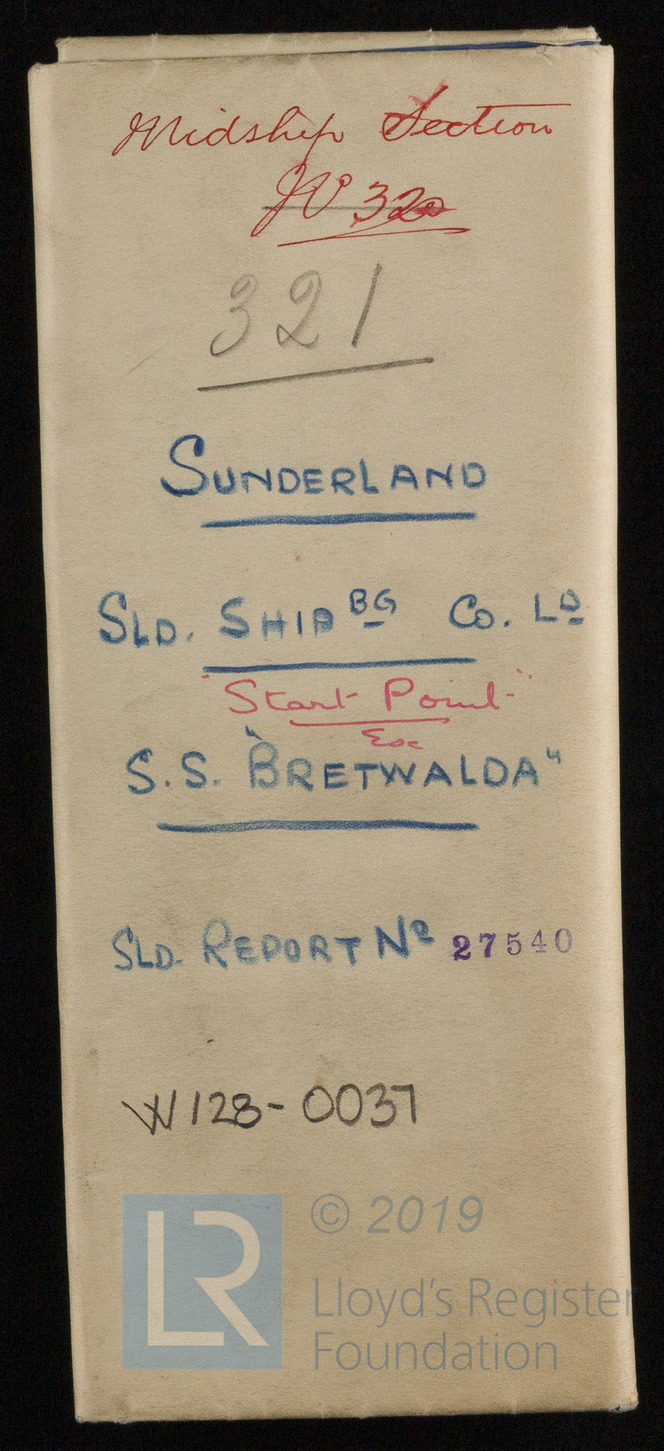 Midship Section
No 320
321
SUNDERLAND
SLD. SHIPBG Co. LD
"Start Point"
Esc
S.S. "BRETWALDA"
SLD. REPORT No 27540
W128-0037
LR
© 2019
Lloyd's Register
Foundation